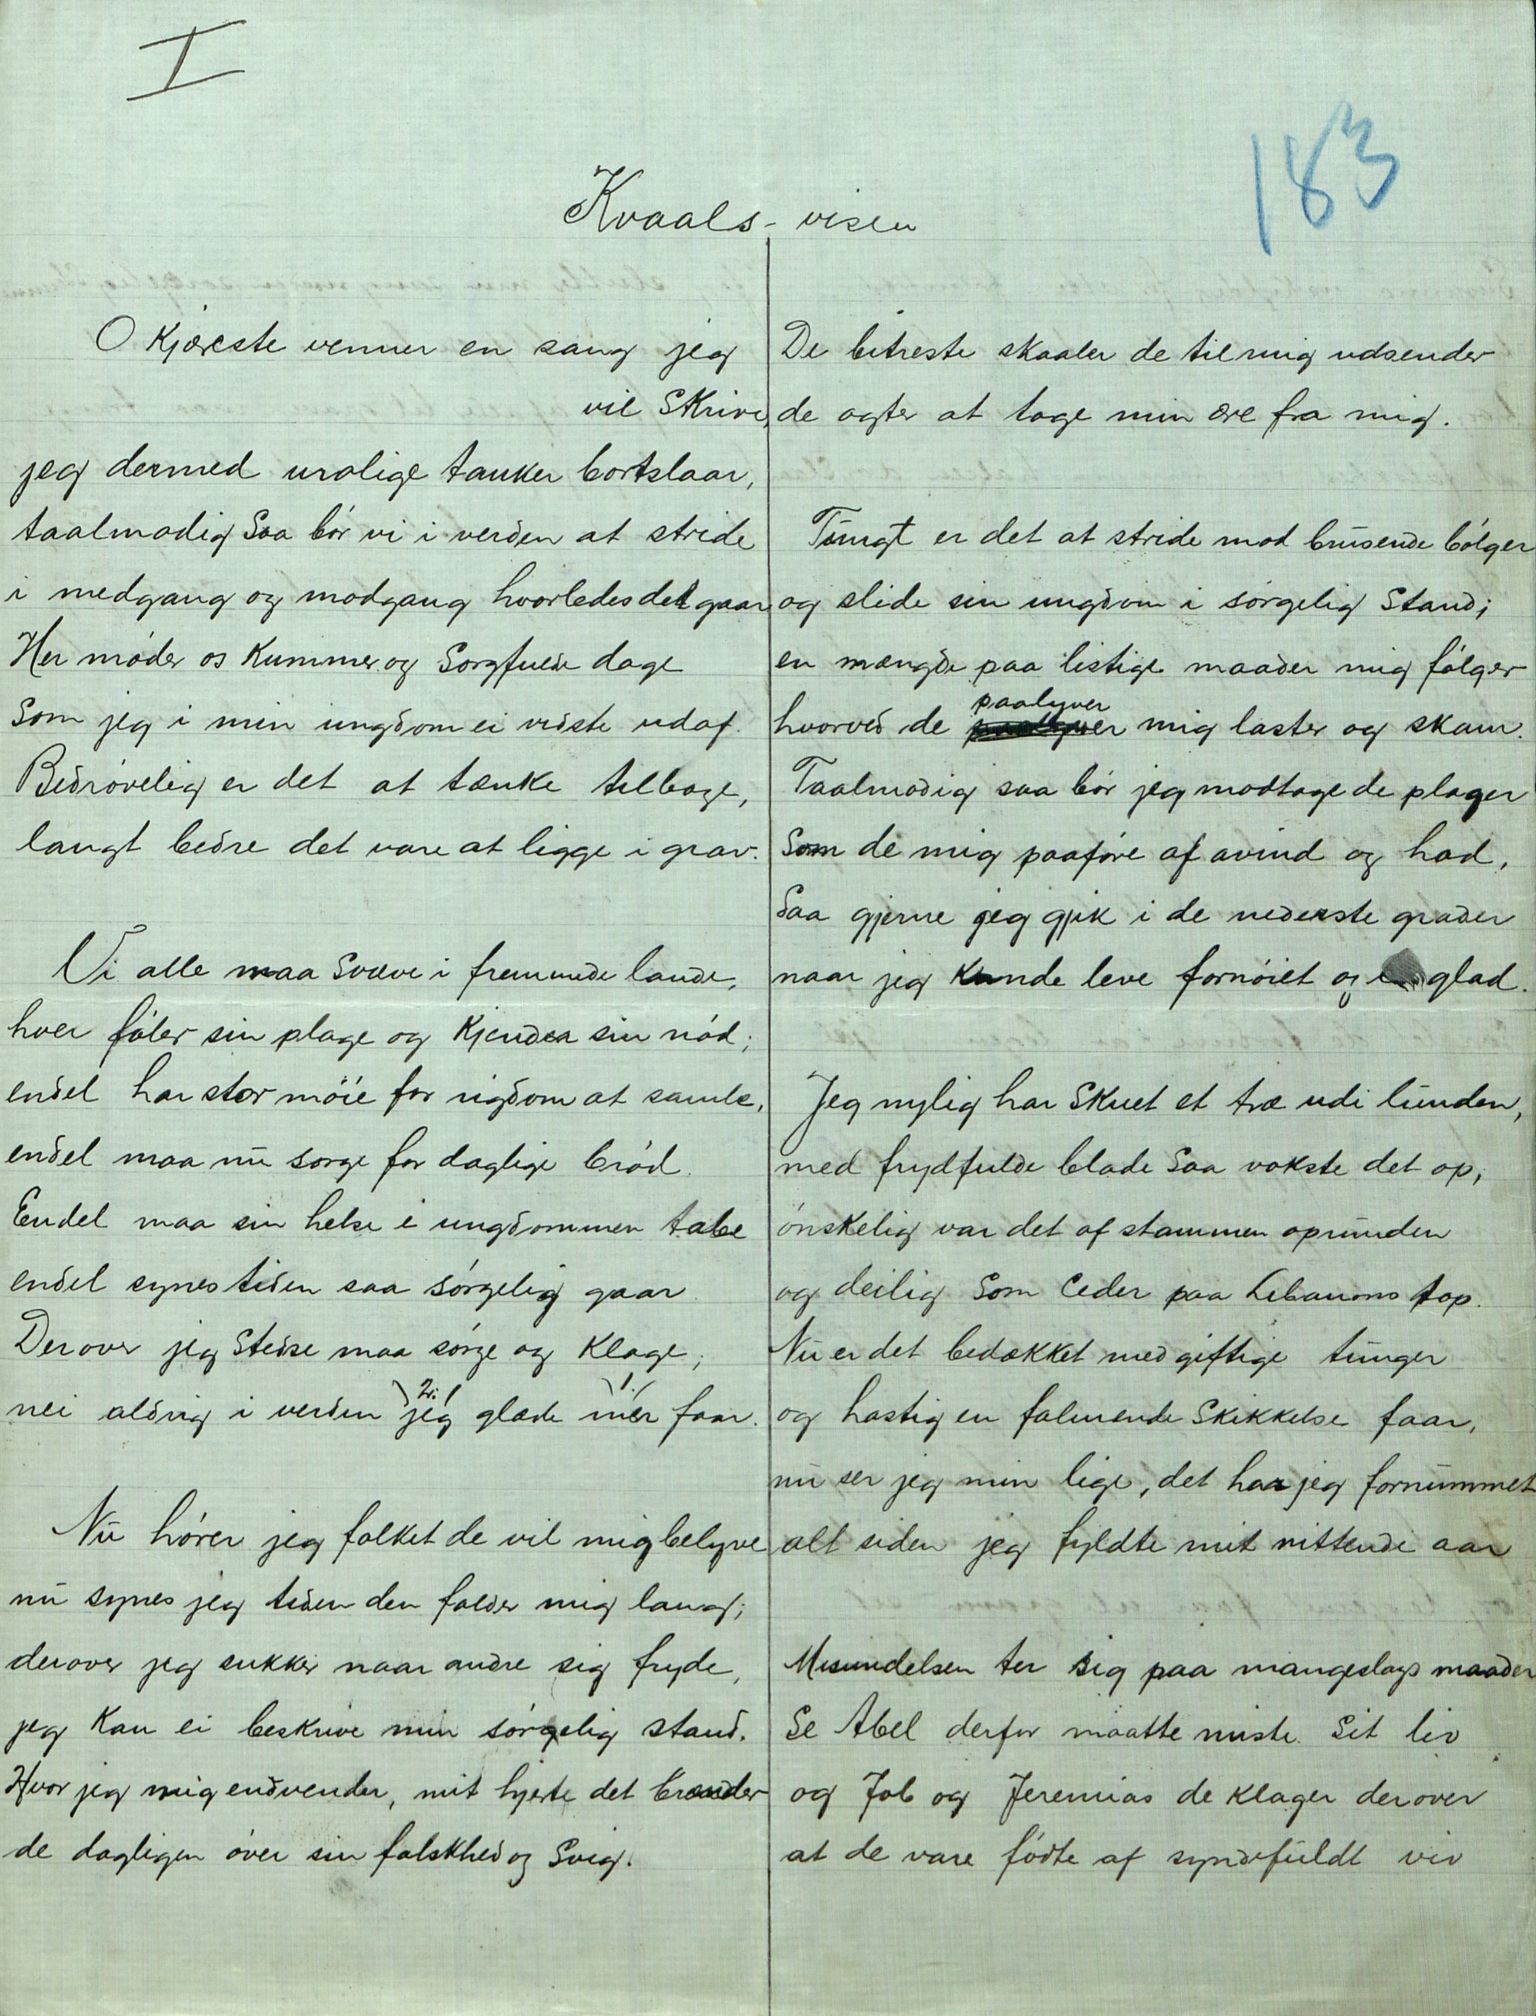 I
183
Kvaals-visen
O Kjæreste venner en sang jeg
vil Skrive,
jeg dermed urolige tanker bortslaar,
taalmodig Saa bör vi i verden at stride
i medgang og modgang hvorledes det gaar
Her möder os Kummer og Sorgfulde dage
Som jeg i min ungdom ei vidste udaf.
Bedrövelig er det at tænke tilbage,
langt bedre det vare at ligge i grav.
Vi alle maa Svæve i fremmede lande,
hver föler sin plage og Kjender sin nöd;
endel har stor möie for rigdom at samle,
endel maa nu sorge for daglige bröd.
Endel maa sin helse i ungdommen tabe
endel synes tiden saa sörgelig gaar.
Derover jeg Stedse maa sörge og Klage,
nei aldrig i verden jeg 2. glæde mer 1. faar.
Nu hörer jeg folket de vil mig belyve
nu synes jeg tiden den falder mig lang;
derover jeg sukker naar andre sig fryde,
jeg Kan ei beskrive min sörgelig stand.
Hvor jeg mig endvender, mit hjerte det brænder
de dagligen över sin falskhed og Svig.
De bitreste skaaler de til mig udsender
de agter at tage min ære fra mig.
Tungt er det at stride mod brusende bölger
og slide sin ungdom i sörgelig Stand;
en mængde paa listige maader mig fölger
hvorved de paalyver mig laster og skam.
Taalmodig saa bör jeg modtage de plager
Som de mig paaföre af avind og had,
Saa gjerne jeg gjik i de nederste grader
naar jeg Kunde leve fornöiet og glad.
Jeg nylig har Skuet et træ udi lunden,
med frydfulde blade Saa vokste det op,
önskelig var det af stammen oprunden
og deilig Som Ceder paa Libanons top.
Nu er det bedækket med giftige tunger
og hastig en falmende Skikkelse faar,
nu ser jeg min lige, det har jeg fornummet
alt siden jeg fyldte mit nittende aar
Misundelsen ter sig paa mangeslags maader
Se Abel derfor maatte miste Sit liv
og Job og Jeremias de Klager derover
at de vare födte af syndefuldt viv